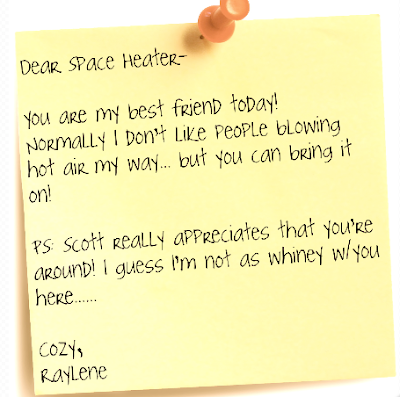 Dear Space Heater-
You are my best friend today!
Normally I don't like people blowing
hot air my way... but you can bring it
on!
PS: Scott really appreciates that you're
around! I guess I'm not as whiney w/you
here......
Cozy,
Raylene